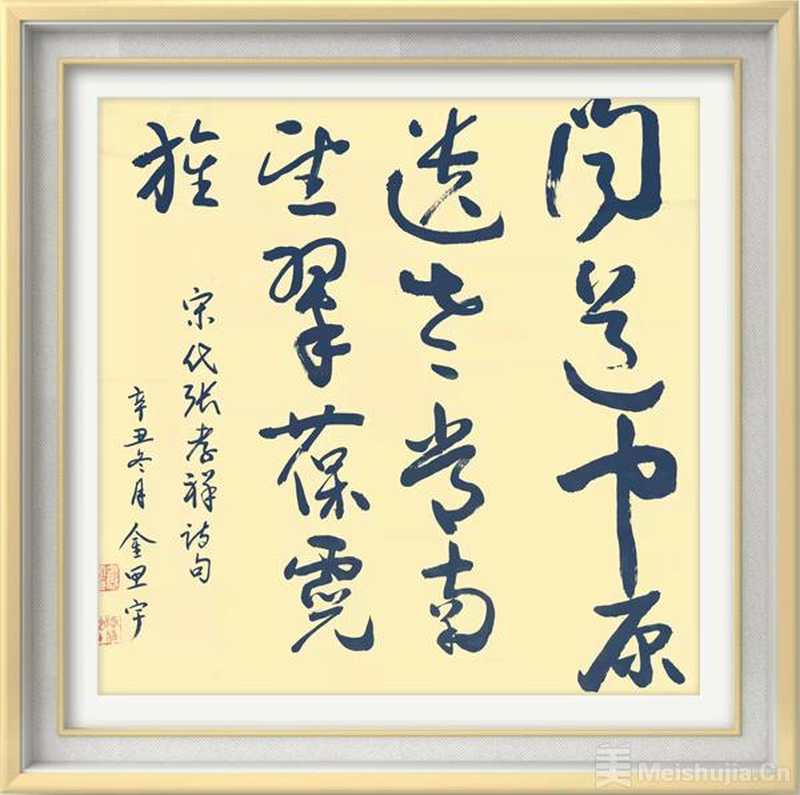 闻道中原
遗老常南
望翠葆霓
旌
宋代张孝祥诗句
辛丑冬月金思宇
Meishujia.Cn